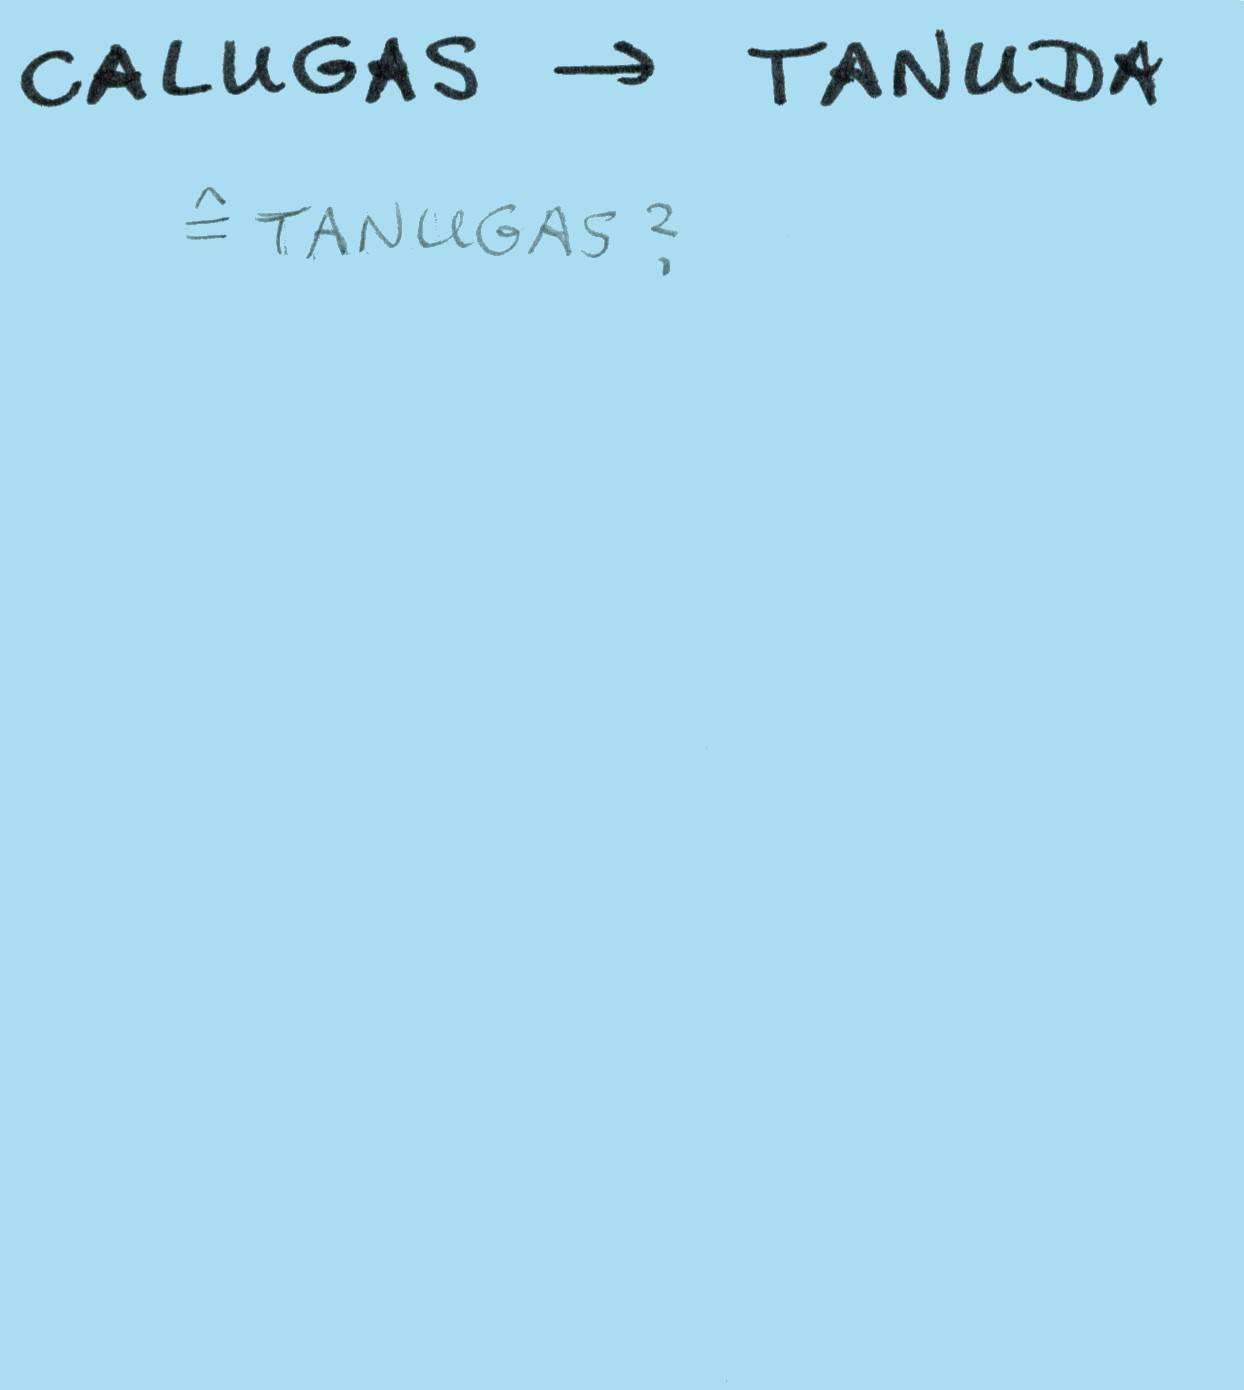 CALUGAS → TANUDA
≙ TANUGAS?